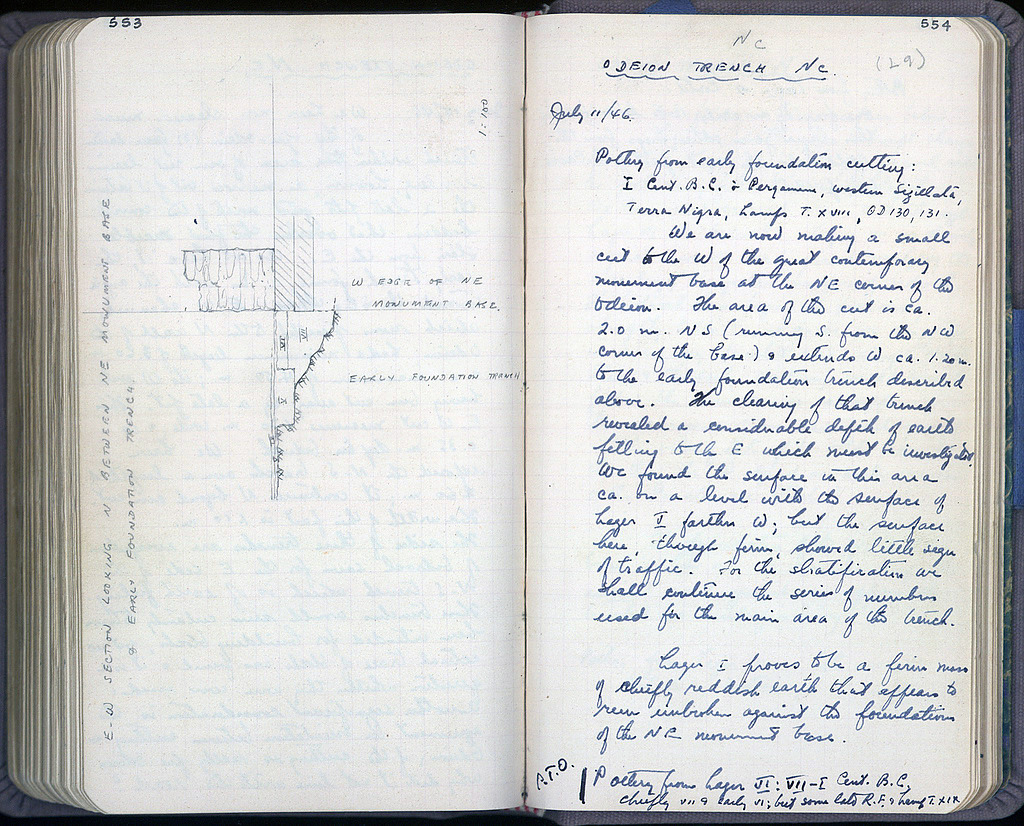 553
1:100
W EDGE OF NE
MONUMENT BASE
EARLY FOUNDATION TRENCH
III
V
E-W SECTION LOOKING N BETWEEN NE MONUMENT BASE
& EARLY FOUNDATION TRENCH.
554
NC
ODEION TRENCH NC.
(29)
July 11/46.
Pottery from early foundation cutting:
I Cent. B.C. : Pergamene, western Sigillata,
Terra Nigra, Lamps T. XVIII, OD 130, 131.
We are now making a small
cut to the W of the great contemporary
monument base at the NE corner of the
Odeion. The area of the cut is ca.
2.0 m. NS (running S. from the NW
corner of the base) & extends W ca. 1.20 m.
to the early foundation trench described
above. The clearing of that trench
revealed a considerable depth of earth
filling to the E which must be investigated.
We found the surface in this area
ca. on a level with the surface of
Layer V farther W; but the surface
here, though firm, showed little sign
of traffic. For the stratification we
shall continue the series of numbers
used for the main area of the trench.
Layer I proves to be a firm mass
of chiefly reddish earth that appears to
run unbroken against the foundations
of the NE monument base.
P.T.O.
Pottery from Layer VI: VII-I Cent. B.C.,
chiefly VII & early VI; but some late R.F. & lamp T. XIX